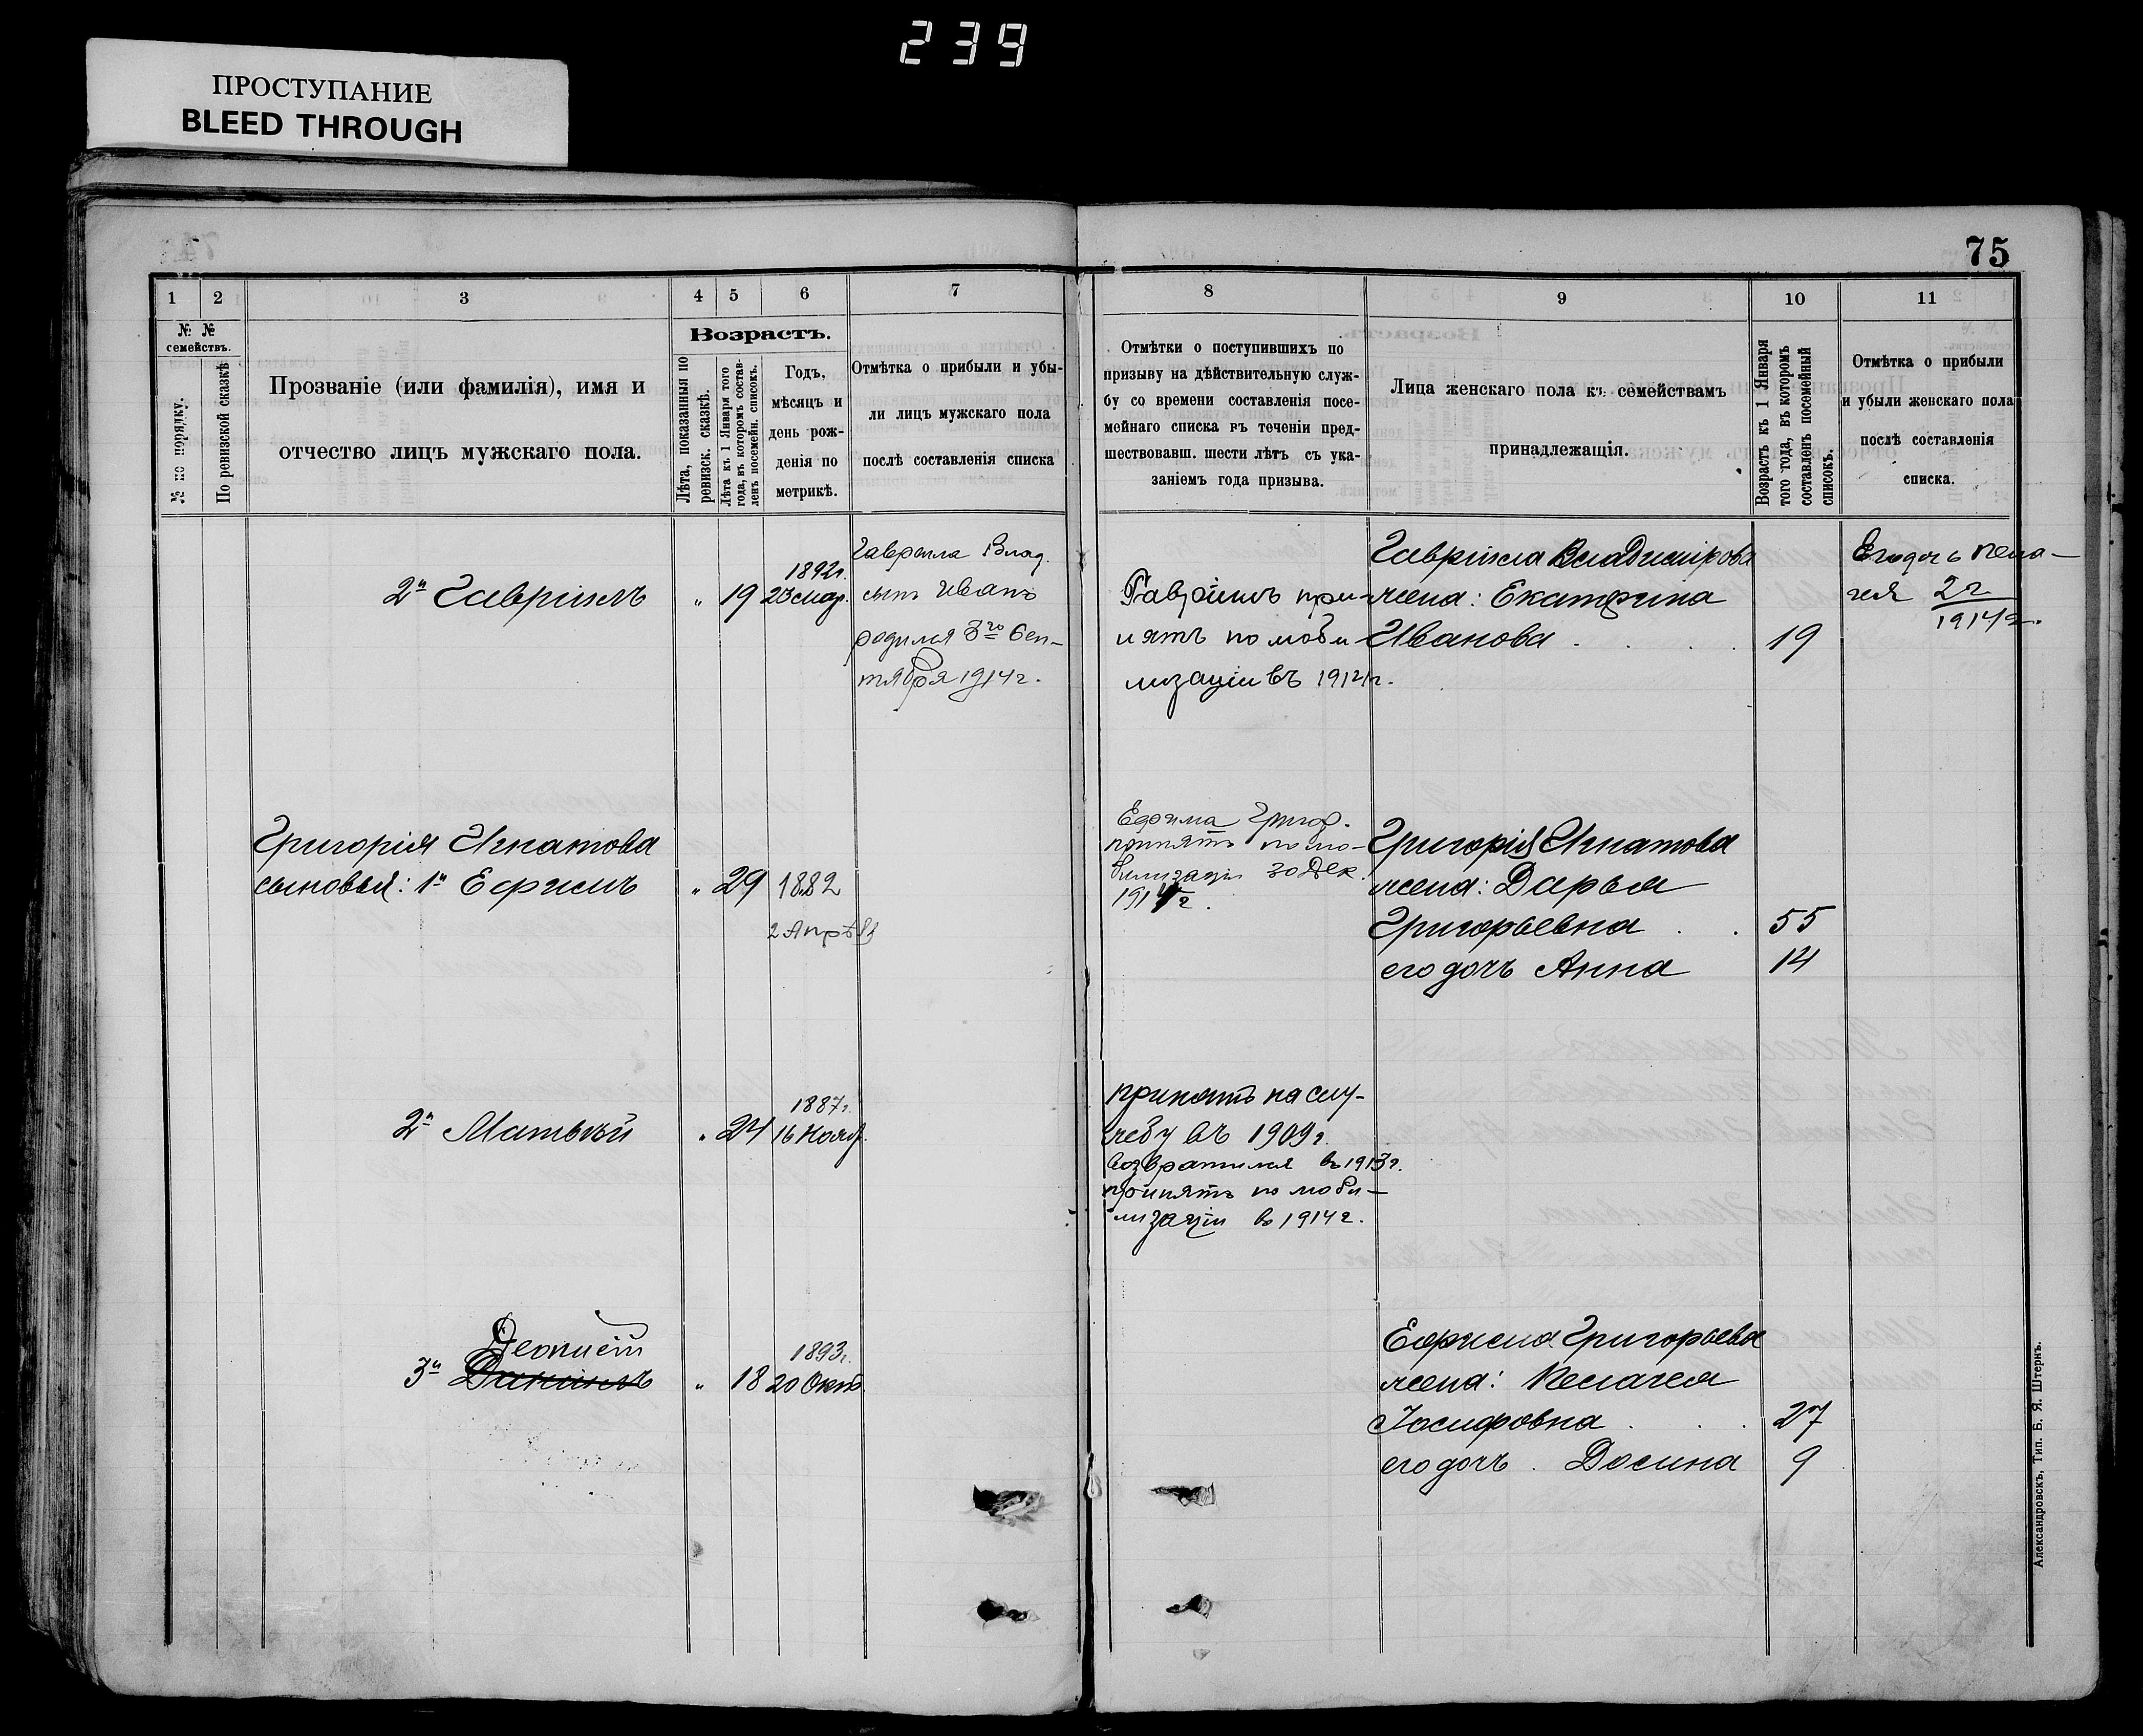 239
ПРОСТУПАНИЕ
BLEED THROUGH
75
1 2 3 4 5 6 7 8 9 10 11
№ №
семействъ.
№ по порядку.
По ревизской сказкѣ
Прозваніе (или фамилія), имя и
отчество лицъ мужскаго пола.
Возрастъ.
Лѣта, показанныя по
ревизск. сказкѣ.
Лѣта къ 1 Января того
года, въ которомъ состав-
ленъ посемейн. списокъ.
Годъ,
мѣсяцъ и
день рож-
денія по
метрикѣ.
Отмѣтка о прибыли и убы-
ли лицъ мужскаго пола
послѣ составленія списка
Отмѣтки о поступившихъ по
призыву на дѣйствительную служ-
бу со времени составленія посе-
мейнаго списка въ теченіи пред-
шествовавш. шести лѣтъ съ ука-
заніемъ года призыва.
Лица женскаго пола къ семействамъ
принадлежащія.
Возрастъ къ 1 Января
того года, въ которомъ
составленъ посемейный
списокъ.
Отмѣтка о прибыли
и убыли женскаго пола
послѣ составленія
списка.
2й Гавріилъ " 19 1892г.
23 мар.
Гавріила Влад.
сынъ Иванъ
родился 3го Сен-
тября 1914г.
Гавріилъ при-
нятъ по моби
лизаціи въ
Гавріила Владимірова
жена: Екатерина
Иванова . . . . 19
Его дочь Пела-
гея 2г
1914г.
Григорія Игнатова
сыновья: 1й Ефимъ " 29 1882
2 Апрѣля
Ефима Григор.
принятъ по мо-
билизаціи 30 Дек.
Григорія Игнатова
жена: Дарья
Григорьевна . . 55
его дочь Анна 14
2й Матвѣй " 24 1887г.
16 Нояб.
принятъ на слу-
жбу въ 1909г.
возвратился въ 1913г.
принятъ по моби-
лизаціи въ 1914г.
3й Даніилъ " 18 1893г.
20 Окт
Ефима Григорьева
жена: Пелагея
Іосифовна . . . 27
его дочь . Досина 9
Александровскъ, Тип. Б. Я. Штернъ.